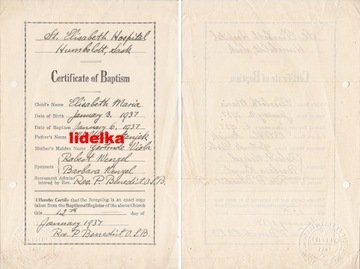 St. Elisabeth Hospital
Humboldt, Sask
Certificate of Baptism
Child's Name Elisabeth Maria
Date of Birth January 3, 1937
Date of Baptism January 6, 1937
Father's Name
lidelka
Mother's Maiden Name Gertrude
Sponsors Robert Wenzel
Barbara Wenzel
Sacrament Administered by Rev. P. Benedict O.S.B.
I Hereby Certify that the foregoing is an exact copy
taken from the Baptismal Register of the above Church
this 12th day of
January 1937
Rev. P. Benedict O.S.B.